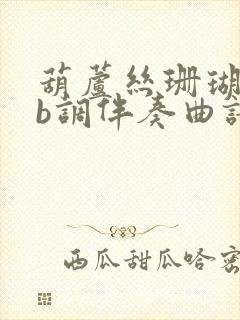 葫蘆絲珊瑚
b調伴奏曲
西瓜甜瓜哈密